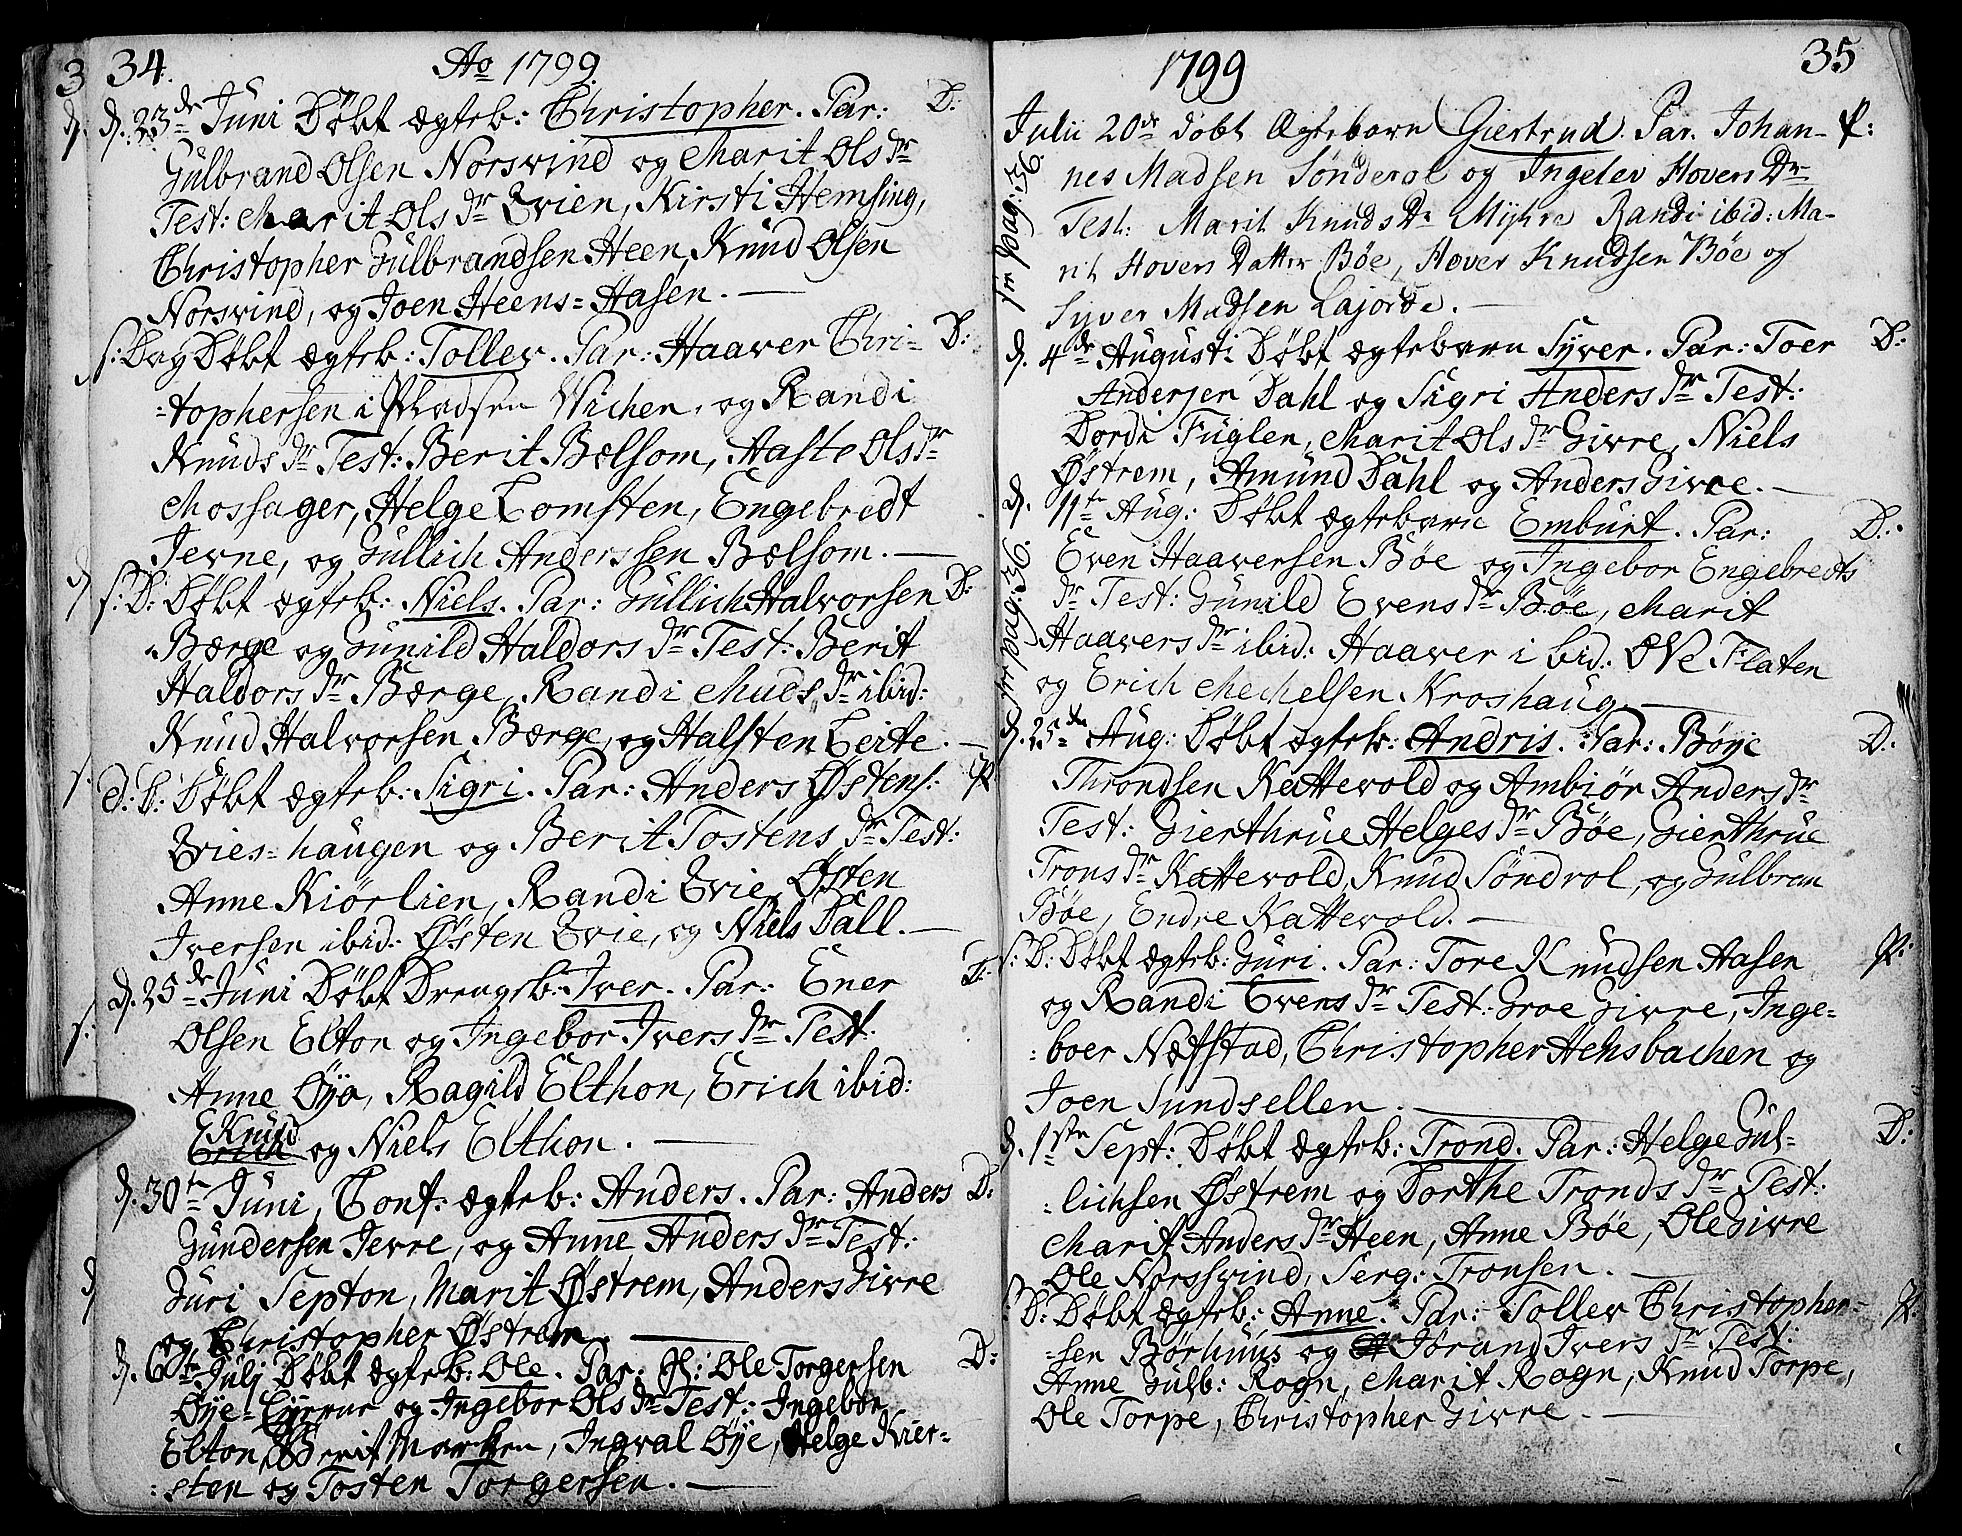 34. Ao 1799.
d. 23de Juni Døbt ægteb: Christopher. Par: D:
Gulbrand Olsen Norsvind og Marit Ols Dr
Test: Marit Ols dr Evien, Kirsti Hemsing,
Christopher Gulbrandsen Heen, Knud Olsen
Norsvind, og Joen Heens=Aasen. —
s: Dag Døbt ægteb: Tollev. Par: Haaver Chri= D:
=tophersen i Wicken, og Randi
Knuds dr Test: Berit Bælsom, Aaste Ols dr
Mossager, Helge Lomsten, Engebredt
Jevne, og Gullich Anderssen Bælsom. —
s: D: Døbt ægteb: Niels. Par: Gullich Halvorsen D:
Børge og Gunild Haldors dr Test: Berit
Haldors dr Børge, Randi dr ibid:
Knud Halvorsen Børge, og Halsten Leite. —
d: D: Døbt ægteb: Sigri. Par: Anders Østens: P
Evies=haugen og Berit Tostens dr Test:
Anne Kiørlien, Randi Evie, Østen
Iversen ibid: Østen Evie, og Niels Dall. —
d. 25de Juni Døbt Drengeb: Iver. Par: Ener D:
Olsen Elton og Ingebor Ivers dr Test:
Anne Øya, Ragild Elthon, Erich ibid:
Knud
Erich og Niels Elthon. —
d. 30te Juni, Conf: ægteb: Anders. Par: Anders D:
Gundersen Jevre, og Anne Anders dr Test:
Guri Septon, Marit Østrem, Anders Givre
og Christopher Østrem. —
d. 6te Julj Døbt ægteb: Ole. Par: Ole Torgersen D:
Øye og Ingebor Ols dr Test: Ingebor
Elton, Berit Marken, Ingval Øye, Helge Kier-
=sten og Tosten Torgersen. —
1799 35
Julii 20de døbt Ægtebarn Giertrud. Par. Johan- P:
nes Madsen Sønderol og Ingelev Hovers Dr
Test: Marit Knuds Dr Myhre Randi ibid: Ma-
rit Hovers Datter Bøe, Hover Knudsen Bøe og
Syver Madsen Lajorde. —
pag: 36.
d. 4de Augusti Døbt ægtebarn Syver. Par: Toer D:
Andersen Dahl og Sigri Anders dr Test:
Dordi Fuglen, Marit Ols dr Givre, Niels
Østrem, Amund Dahl og Anders Givre. —
d. 11te Aug: Døbt ægtebarn Emburt. Par: D:
Even Haaversen Bøe og Ingebor Engebredts
dr Test: Gunild Evens dr Bøe, Marit
Haavers dr ibid: Haaver ibid: Ole Flaten
og Erich Mechelsen Kroshaug. —
pag: 36.
d. 25de Aug: Døbt ægteb: Andris. Par: Bøye D:
Throndsen Kattevold og Ambiør Anders dr
Test: Gierthrue Helges dr Bøe, Gierthrue
Trons dr Kattevold, Knud Søndrol, og Gulbran
Bøe, Endre Kattevold. —
s: D: Døbt ægteb: Guri. Par: Tore Knudsen Aasen P:
og Randi Evens dr Test: Groe Givre, Inge=
=boer Næfstad, Christopher Hensbachen og
Joen Sundsellen. —
d. 1ste Sept: Døbt ægteb: Trond. Par: Helge Gul- D:
=lichsen Østrem og Dorthe Tronds dr Test:
Marit Anders dr Heen, Anne Bøe, Ole Givre
Ole Norssvind, Serg: Tronsen. —
D: Døbt ægteb: Anne. Par: Tollev Christopher= P:
=sen Børhuus og Jørand Ivers dr Test:
Anne Gulb: Rogn, Marit Rogn, Knud Torpe,
Ole Torpe, Christopher Givre. —